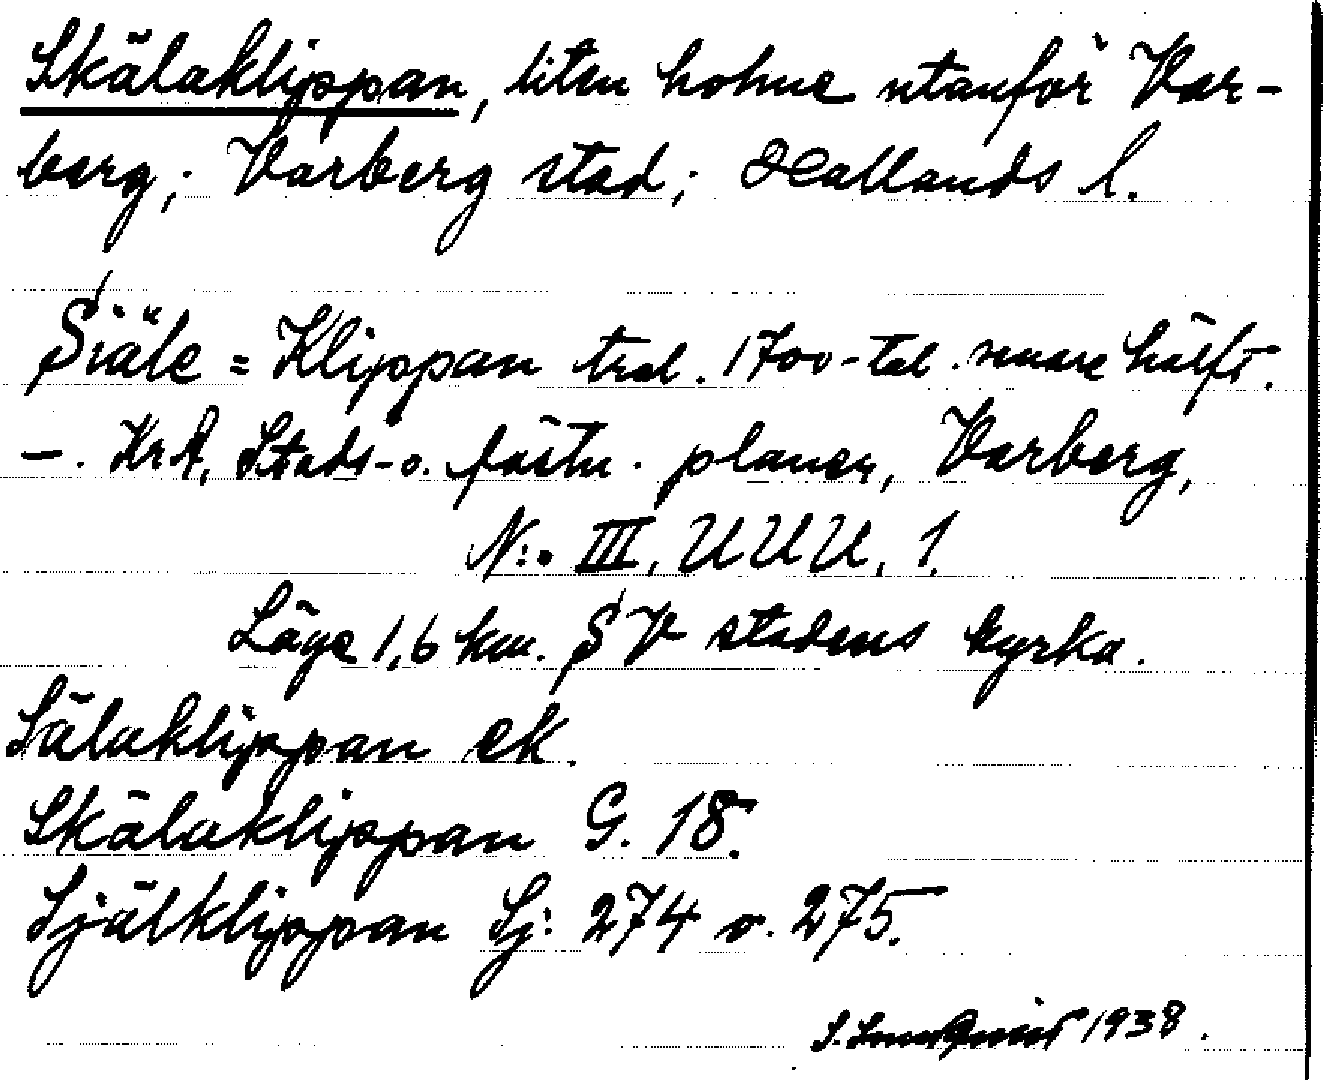 Skälaklippan, liten holme utanför Var-
berg; Varberg stad; Hallands l.
Siäle = Klippan trol. 1700-tal senare hälft.
—. KrA, Stads- o. fästn. planer, Varberg,
N:o III, UUU, 1.
Läge 1,6 km. SV stadens kyrka.
Sälaklippan ek.
Skälaklippan G. 18.
Själklippan Sj: 274 o. 275.
S. 1938.